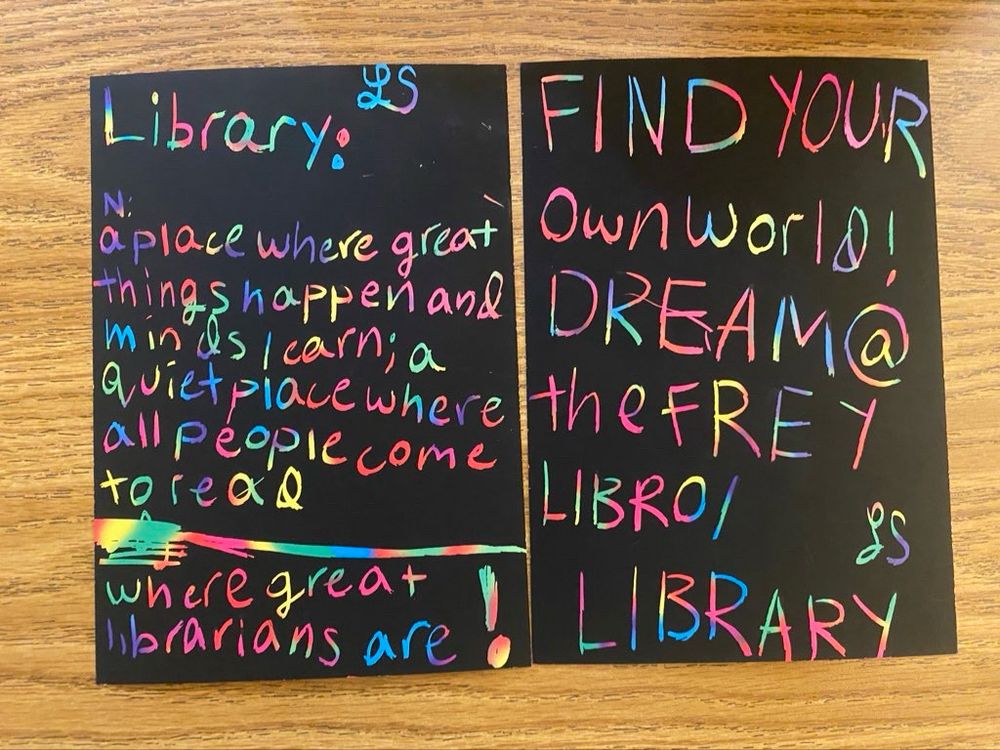 LS
Library:
N:
a place where great
things happen and
minds learn; a
quiet place where
all people come
to read
where great
librarians are !
FIND YOUR
Own world!
DREAM @
the FREY
LIBRO/
LS
LIBRARY